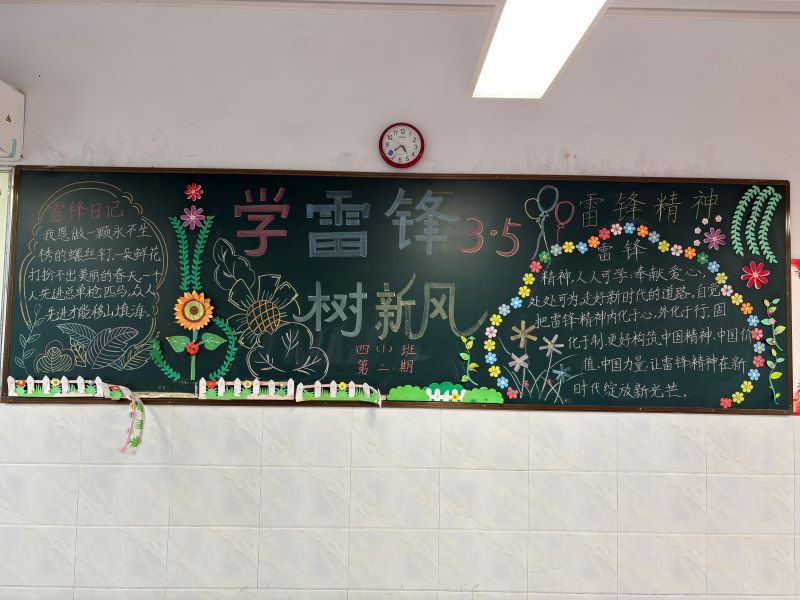 雷锋日记
我愿做一颗永不生
锈的螺丝钉.一朵鲜花
打扮不出美丽的春天,一个
人先进总单枪匹马,众人
先进才能移山填海。
学雷锋3·5
树新风
四(1)班
第二期
雷锋精神
雷锋
精神,人人可学;奉献爱心,
处处可为,走好新时代的道路,自觉
把雷锋精神内化于心,外化于行,固
化于制,更好构筑中国精神,中国价
值,中国力量,让雷锋精神在新
时代绽放新光芒。